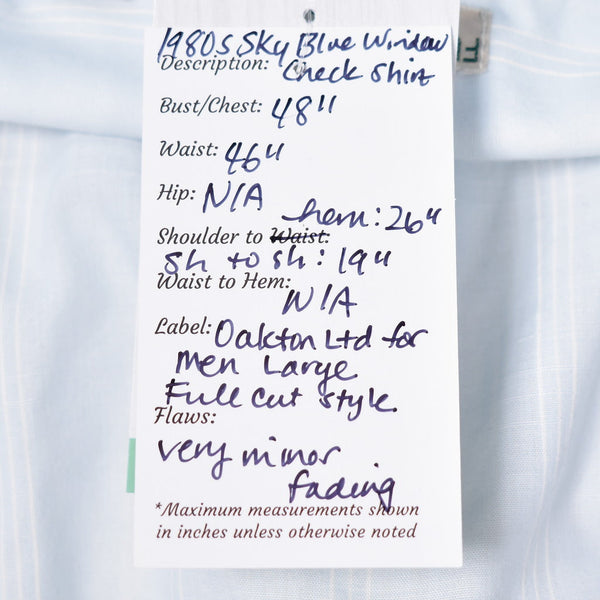 1980s Sky Blue Window
Description: Check Shirt
Bust/Chest: 48"
Waist: 46"
Hip: N/A
Shoulder to Waist: hem: 26"
sh to sh: 19"
Waist to Hem:
N/A
Label: Oakton Ltd for
Men Large
Full cut style
Flaws:
very minor
fading
*Maximum measurements shown
in inches unless otherwise noted